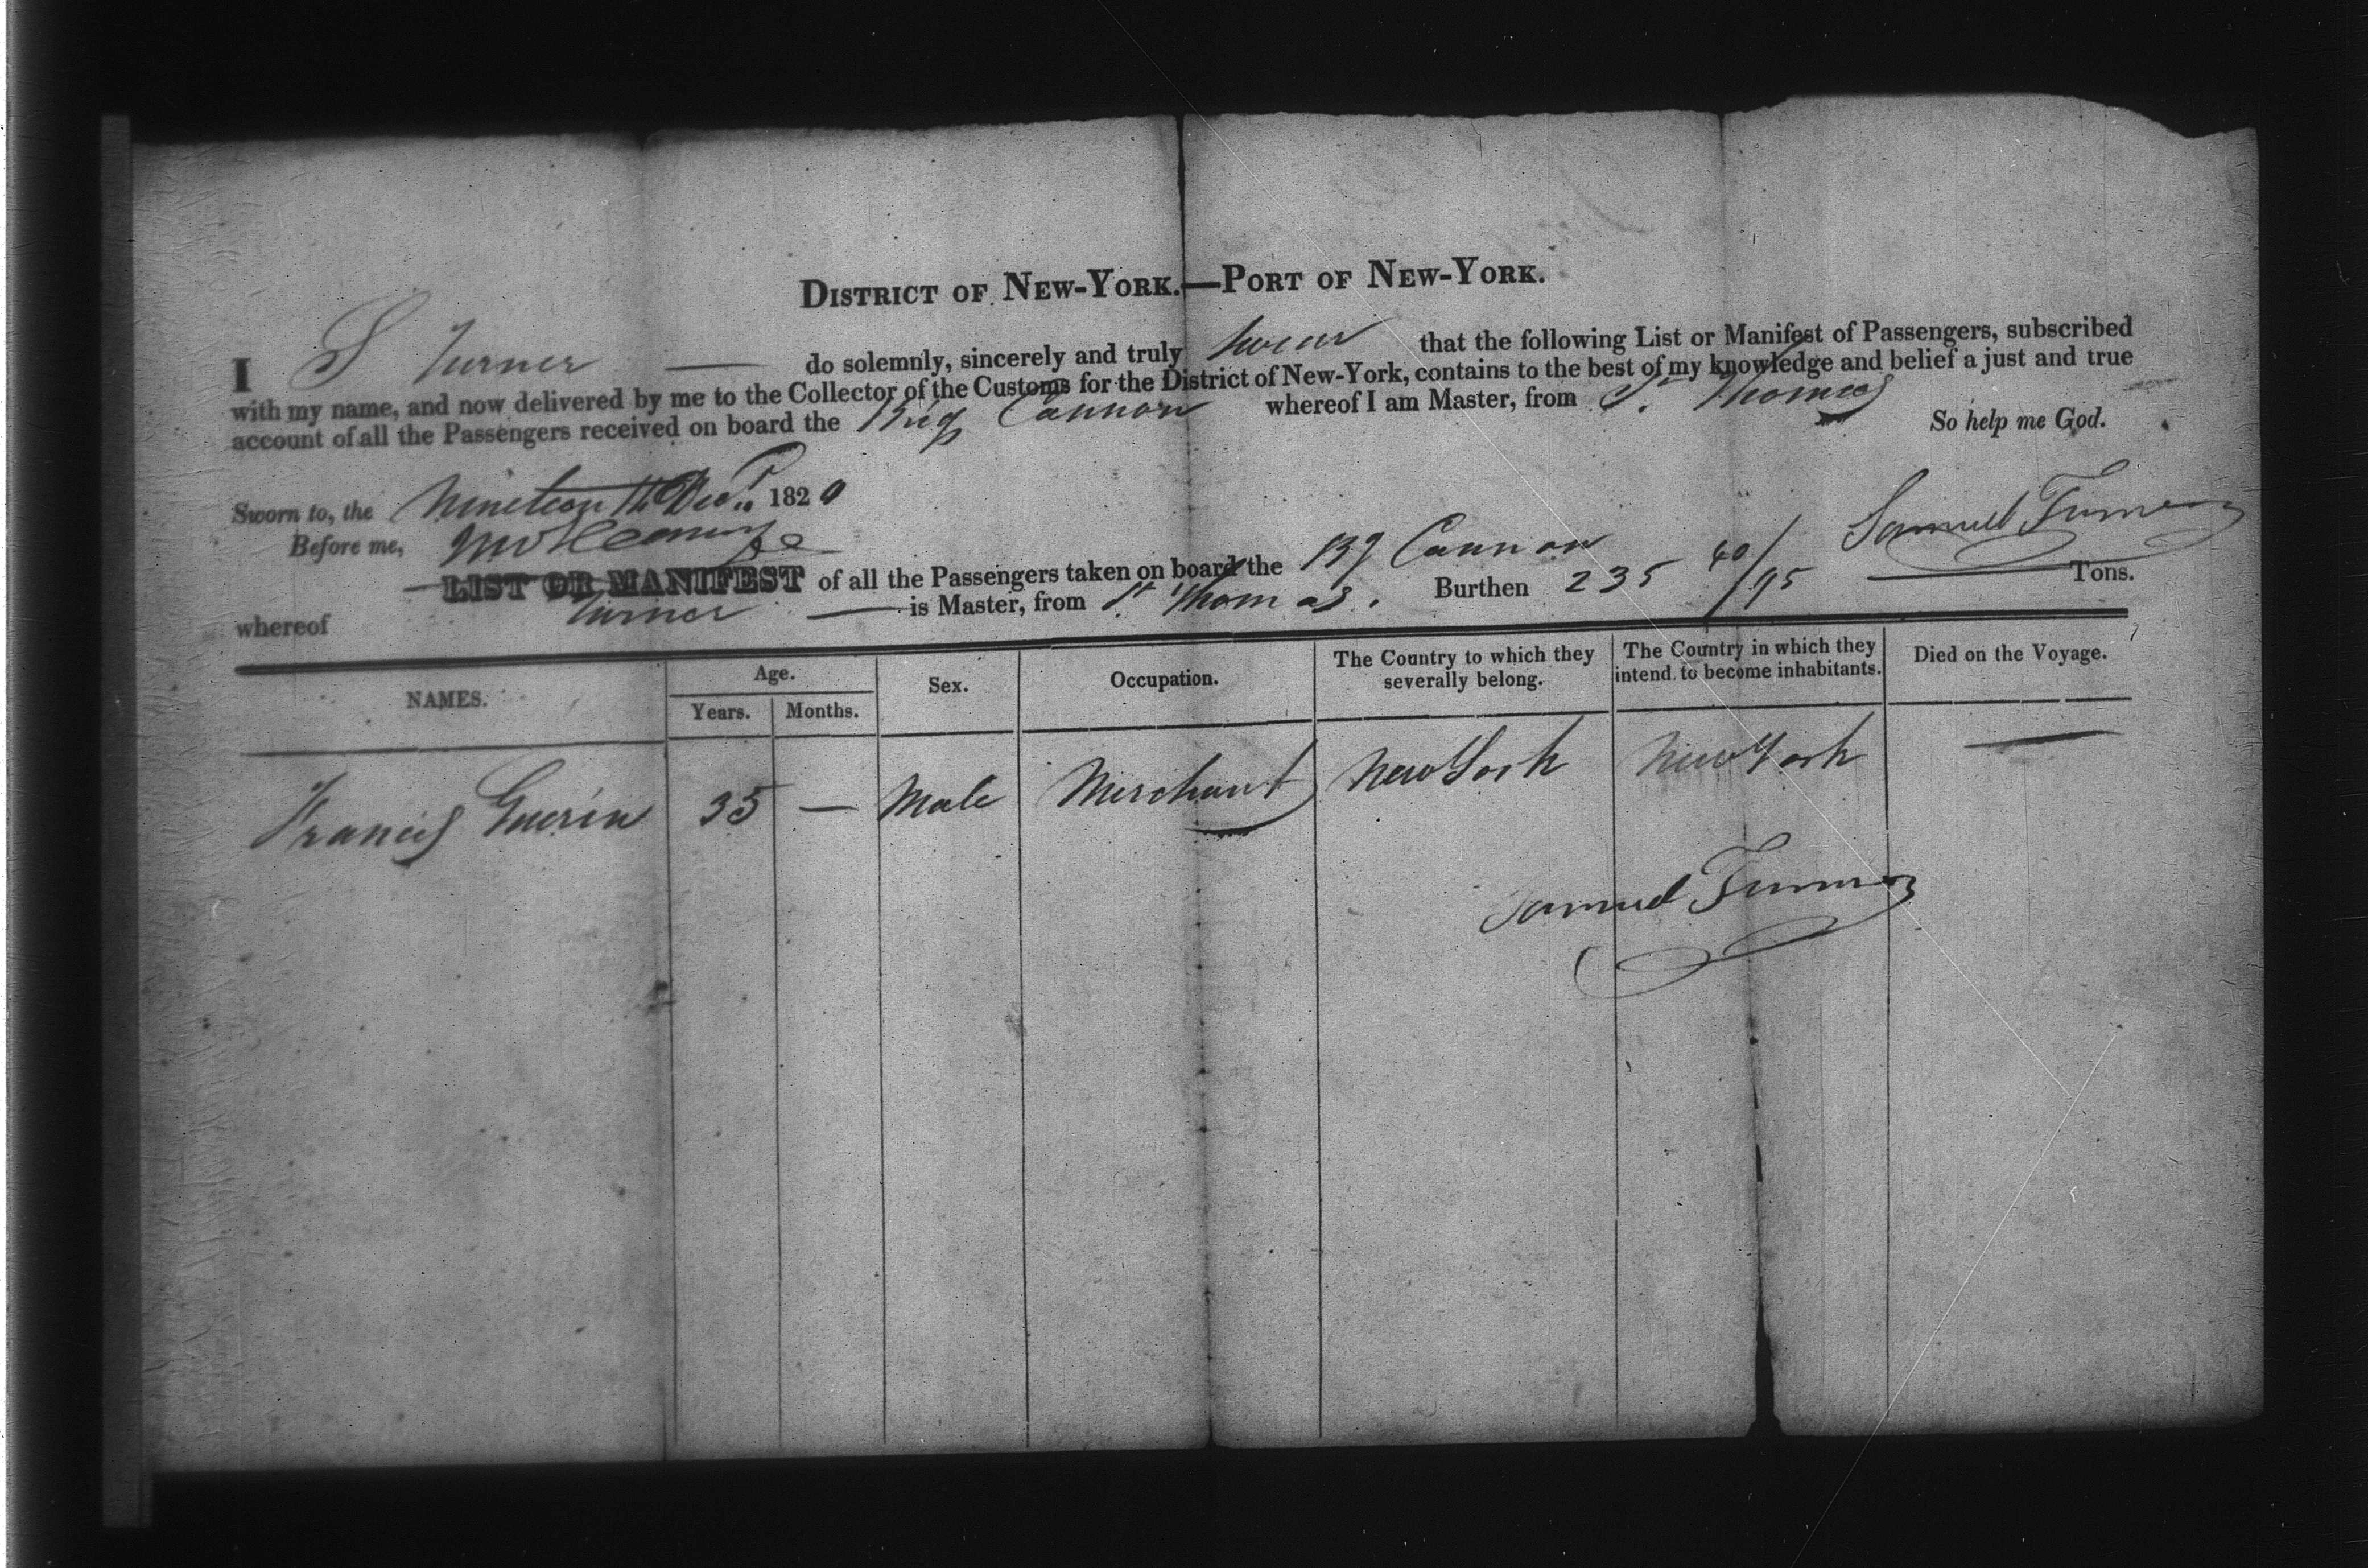 DISTRICT OF NEW-YORK.—PORT OF NEW-YORK.
I S Turner — do solemnly, sincerely and truly swear that the following List or Manifest of Passengers, subscribed
with my name, and now delivered by me to the Collector of the Customs for the District of New-York, contains to the best of my knowledge and belief a just and true
account of all the Passengers received on board the Brig Cannon whereof I am Master, from St. Thomas
So help me God.
Sworn to, the Nineteenth Decr. 1820
Samuel Turner
Before me,
LIST OR MANIFEST of all the Passengers taken on board the Bg Cannon Burthen 235 40/95 — Tons.
whereof Turner — is Master, from St Thomas.
NAMES. Age. Years. Months. Sex. Occupation. The Country to which they severally belong. The Country in which they intend to become inhabitants. Died on the Voyage.
Francis Guerin 35 — Male Merchant New York New York —
Samuel Turner